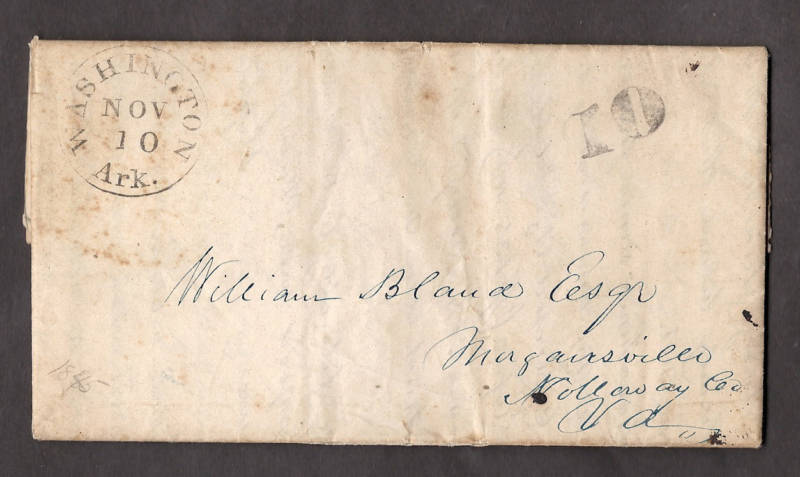 WASHINGTON
NOV
10
Ark.
10
William Bland Esqr
Morgansville
Nottoway Co
Va
1845